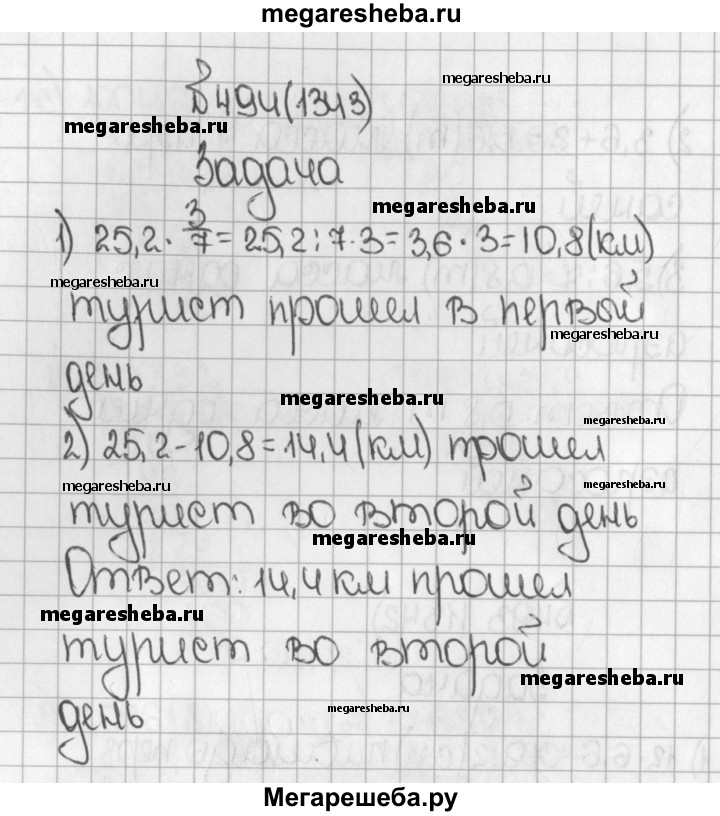 megaresheba.ru
megaresheba.ru
№494(1343)
megaresheba.ru
Задача
megaresheba.ru
1) 25,2·3/7=25,2:7·3=3,6·3=10,8(км)
megaresheba.ru
турист прошел в первой
megaresheba.ru
день
megaresheba.ru
megaresheba.ru
2) 25,2-10,8=14,4(км) прошел
megaresheba.ru
megaresheba.ru
турист во второй день
megaresheba.ru
Ответ: 14,4км прошел
megaresheba.ru
турист во второй
megaresheba.ru
день
megaresheba.ru
Мегарешеба.ру